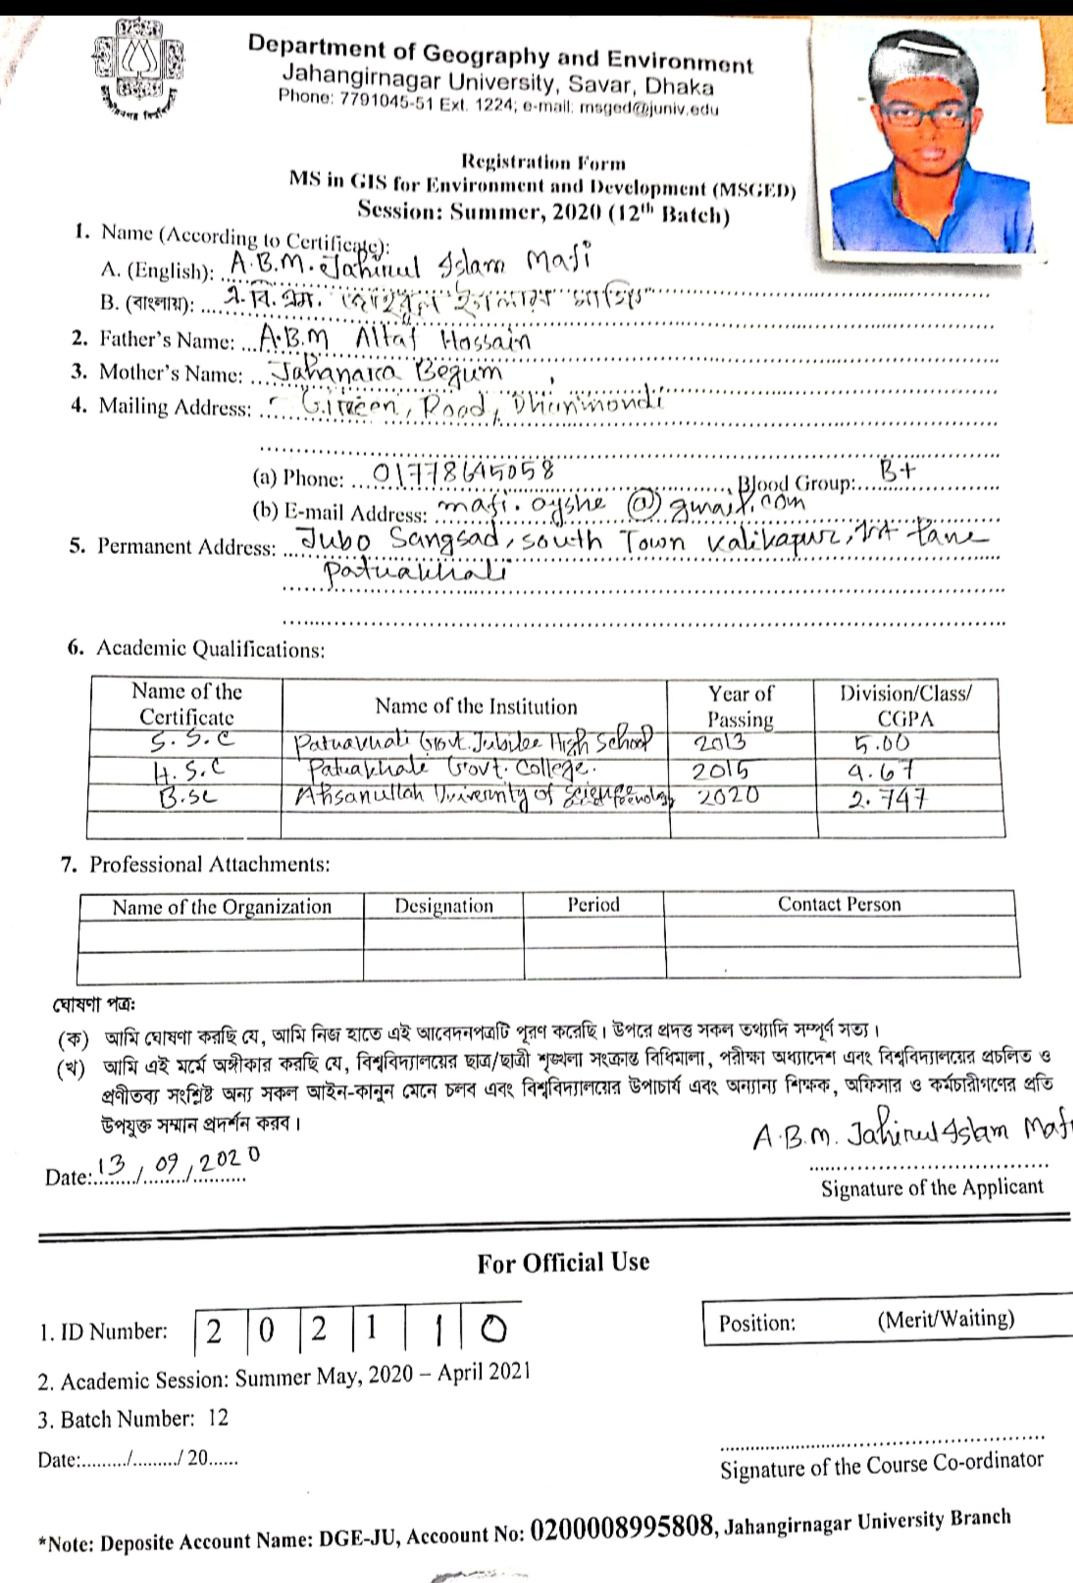 Department of Geography and Environment
Jahangirnagar University, Savar, Dhaka
Phone: 7791045-51 Ext. 1224; e-mail: msged@juniv.edu
Registration Form
MS in GIS for Environment and Development (MSGED)
Session: Summer, 2020 (12th Batch)
1. Name (According to Certificate):
A. (English): A.B.M. Jahirul Islam Mafi
B. (বাংলায়): এ. বি. এম. জাহিরুল ইসলাম মাফি
2. Father's Name: A.B.M Altaf Hossain
3. Mother's Name: Jahanara Begum
4. Mailing Address: Green, Road, Dhanmondi
(a) Phone: 01778645058 Blood Group: B+
(b) E-mail Address: mafi.oyshe@gmail.com
5. Permanent Address: Jubo Sangsad, south Town Kalikapur, 1st lane
Patuakhali
6. Academic Qualifications:
Name of the Certificate Name of the Institution Year of Passing Division/Class/ CGPA
S.S.C Patuakhali Govt. Jubilee High School 2013 5.00
H.S.C Patuakhali Govt. College. 2015 4.67
B.sc Ahsanullah University of Science Technology 2020 2.747
7. Professional Attachments:
Name of the Organization Designation Period Contact Person
ঘোষণা পত্র:
(ক) আমি ঘোষণা করছি যে, আমি নিজ হাতে এই আবেদনপত্রটি পূরণ করেছি। উপরে প্রদত্ত সকল তথ্যাদি সম্পূর্ণ সত্য।
(খ) আমি এই মর্মে অঙ্গীকার করছি যে, বিশ্ববিদ্যালয়ের ছাত্র/ছাত্রী শৃঙ্খলা সংক্রান্ত বিধিমালা, পরীক্ষা অধ্যাদেশ এবং বিশ্ববিদ্যালয়ের প্রচলিত ও
প্রণীতব্য সংশ্লিষ্ট অন্য সকল আইন-কানুন মেনে চলব এবং বিশ্ববিদ্যালয়ের উপাচার্য এবং অন্যান্য শিক্ষক, অফিসার ও কর্মচারীগণের প্রতি
উপযুক্ত সম্মান প্রদর্শন করব।
A.B.M. Jahirul Islam Mafi
Date: 13/09/2020
Signature of the Applicant
For Official Use
1. ID Number: 2 0 2 1 1 0 Position: (Merit/Waiting)
2. Academic Session: Summer May, 2020 – April 2021
3. Batch Number: 12
Date:........./........./ 20......
Signature of the Course Co-ordinator
*Note: Deposite Account Name: DGE-JU, Accoount No: 0200008995808, Jahangirnagar University Branch